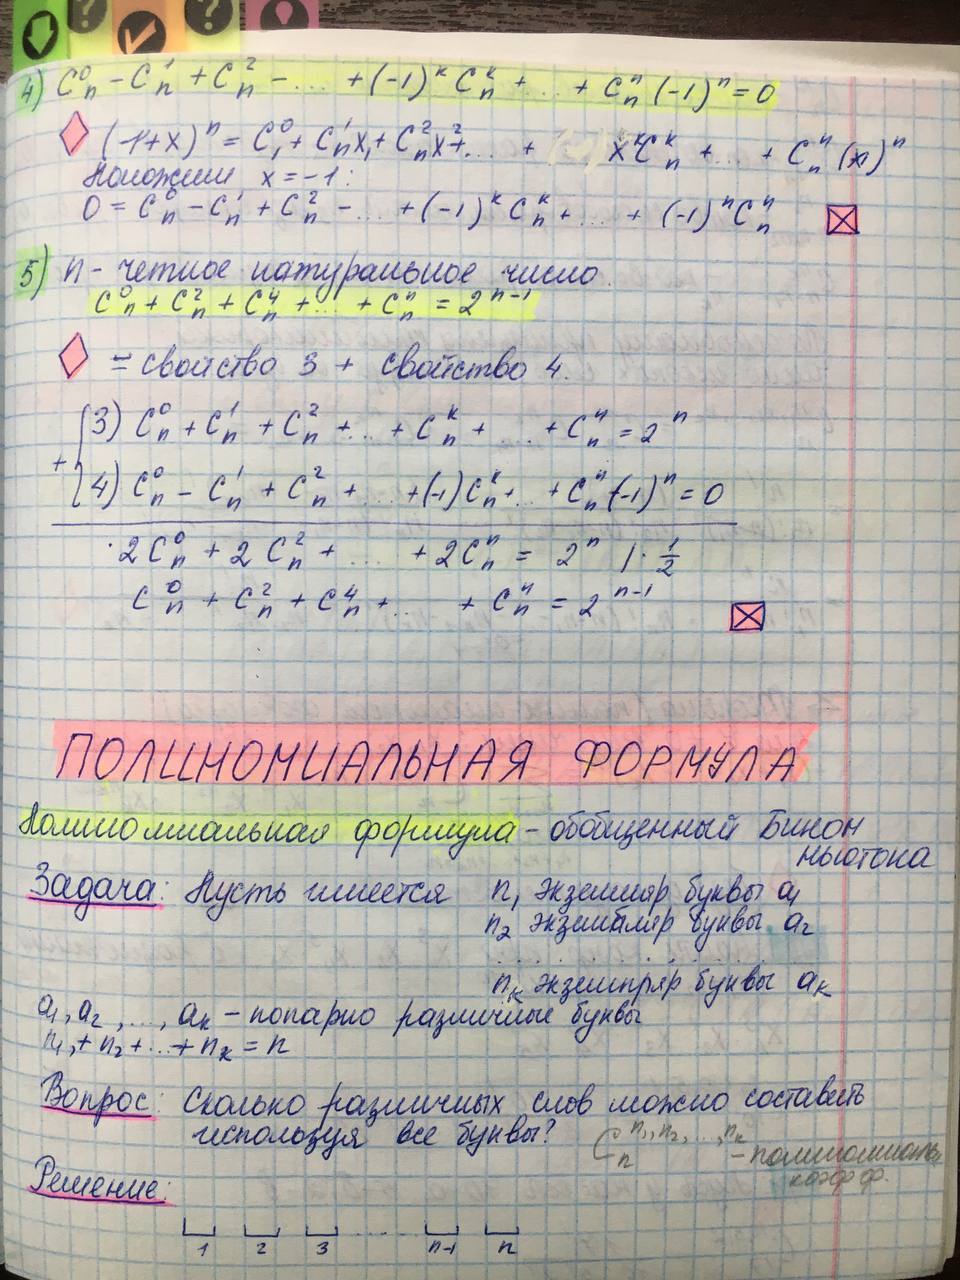 4) C_n^0 - C_n^1 + C_n^2 - ... + (-1)^k C_n^k + ... + C_n^n (-1)^n = 0
(1+x)^n = C_n^0 + C_n^1 x + C_n^2 x^2 + ... + x^k C_n^k + ... + C_n^n (x)^n
Положим x = -1:
0 = C_n^0 - C_n^1 + C_n^2 - ... + (-1)^k C_n^k + ... + (-1)^n C_n^n
5) n - четное натуральное число
C_n^0 + C_n^2 + C_n^4 + ... + C_n^n = 2^{n-1}
= свойство 3 + свойство 4.
3) C_n^0 + C_n^1 + C_n^2 + ... + C_n^k + ... + C_n^n = 2^n
+
4) C_n^0 - C_n^1 + C_n^2 + ... + (-1) C_n^k + ... + C_n^n (-1)^n = 0
2C_n^0 + 2C_n^2 + ... + 2C_n^n = 2^n | · 1/2
C_n^0 + C_n^2 + C_n^4 + ... + C_n^n = 2^{n-1}
ПОЛИНОМИАЛЬНАЯ ФОРМУЛА
Полиномиальная формула - обобщенный Бином
Ньютона
Задача: Пусть имеется n_1 экземпляр буквы a_1
n_2 экземпляр буквы a_2
..........
n_k экземпряр буквы a_k
a_1, a_2, ..., a_k - попарно различные буквы
n_1 + n_2 + ... + n_k = n
Вопрос: Сколько различных слов можно составить
используя все буквы?
C_n^{n_1, n_2, ..., n_k} - полиномиальн.
коэфф.
Решение:
1 2 3 ... n-1 n